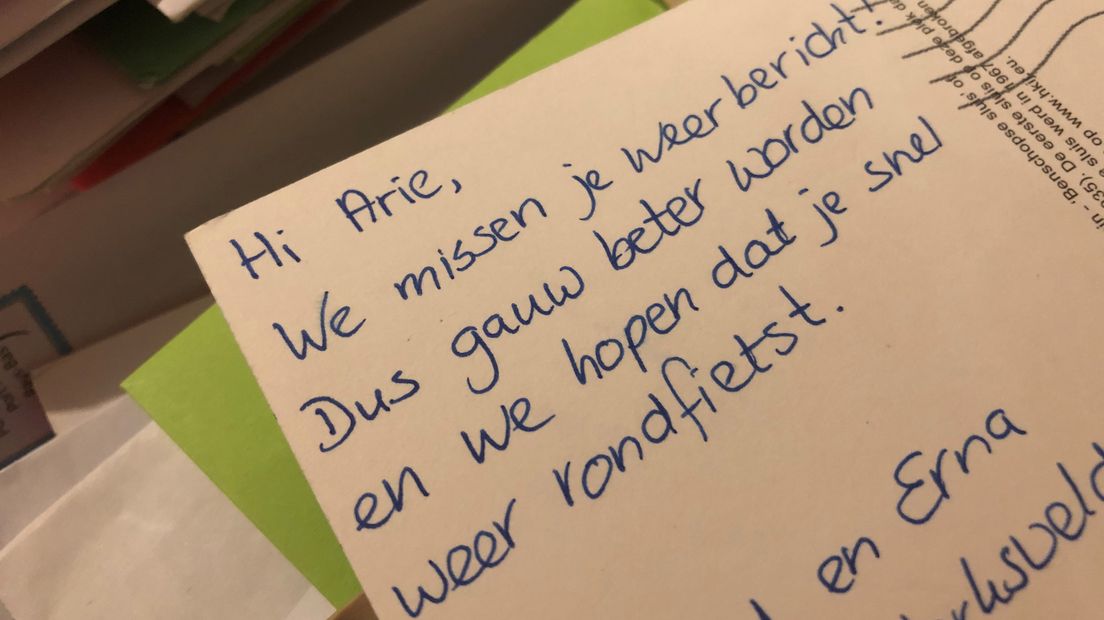 Hi Arie,
We missen je weerbericht!
Dus gauw beter worden
en we hopen dat je snel
weer rondfietst.
en Erna
in - 'Benschopse sluis' o
35). De eerste sluis op deze plek
sluis werd in 1967 afgebroken
op www.hki